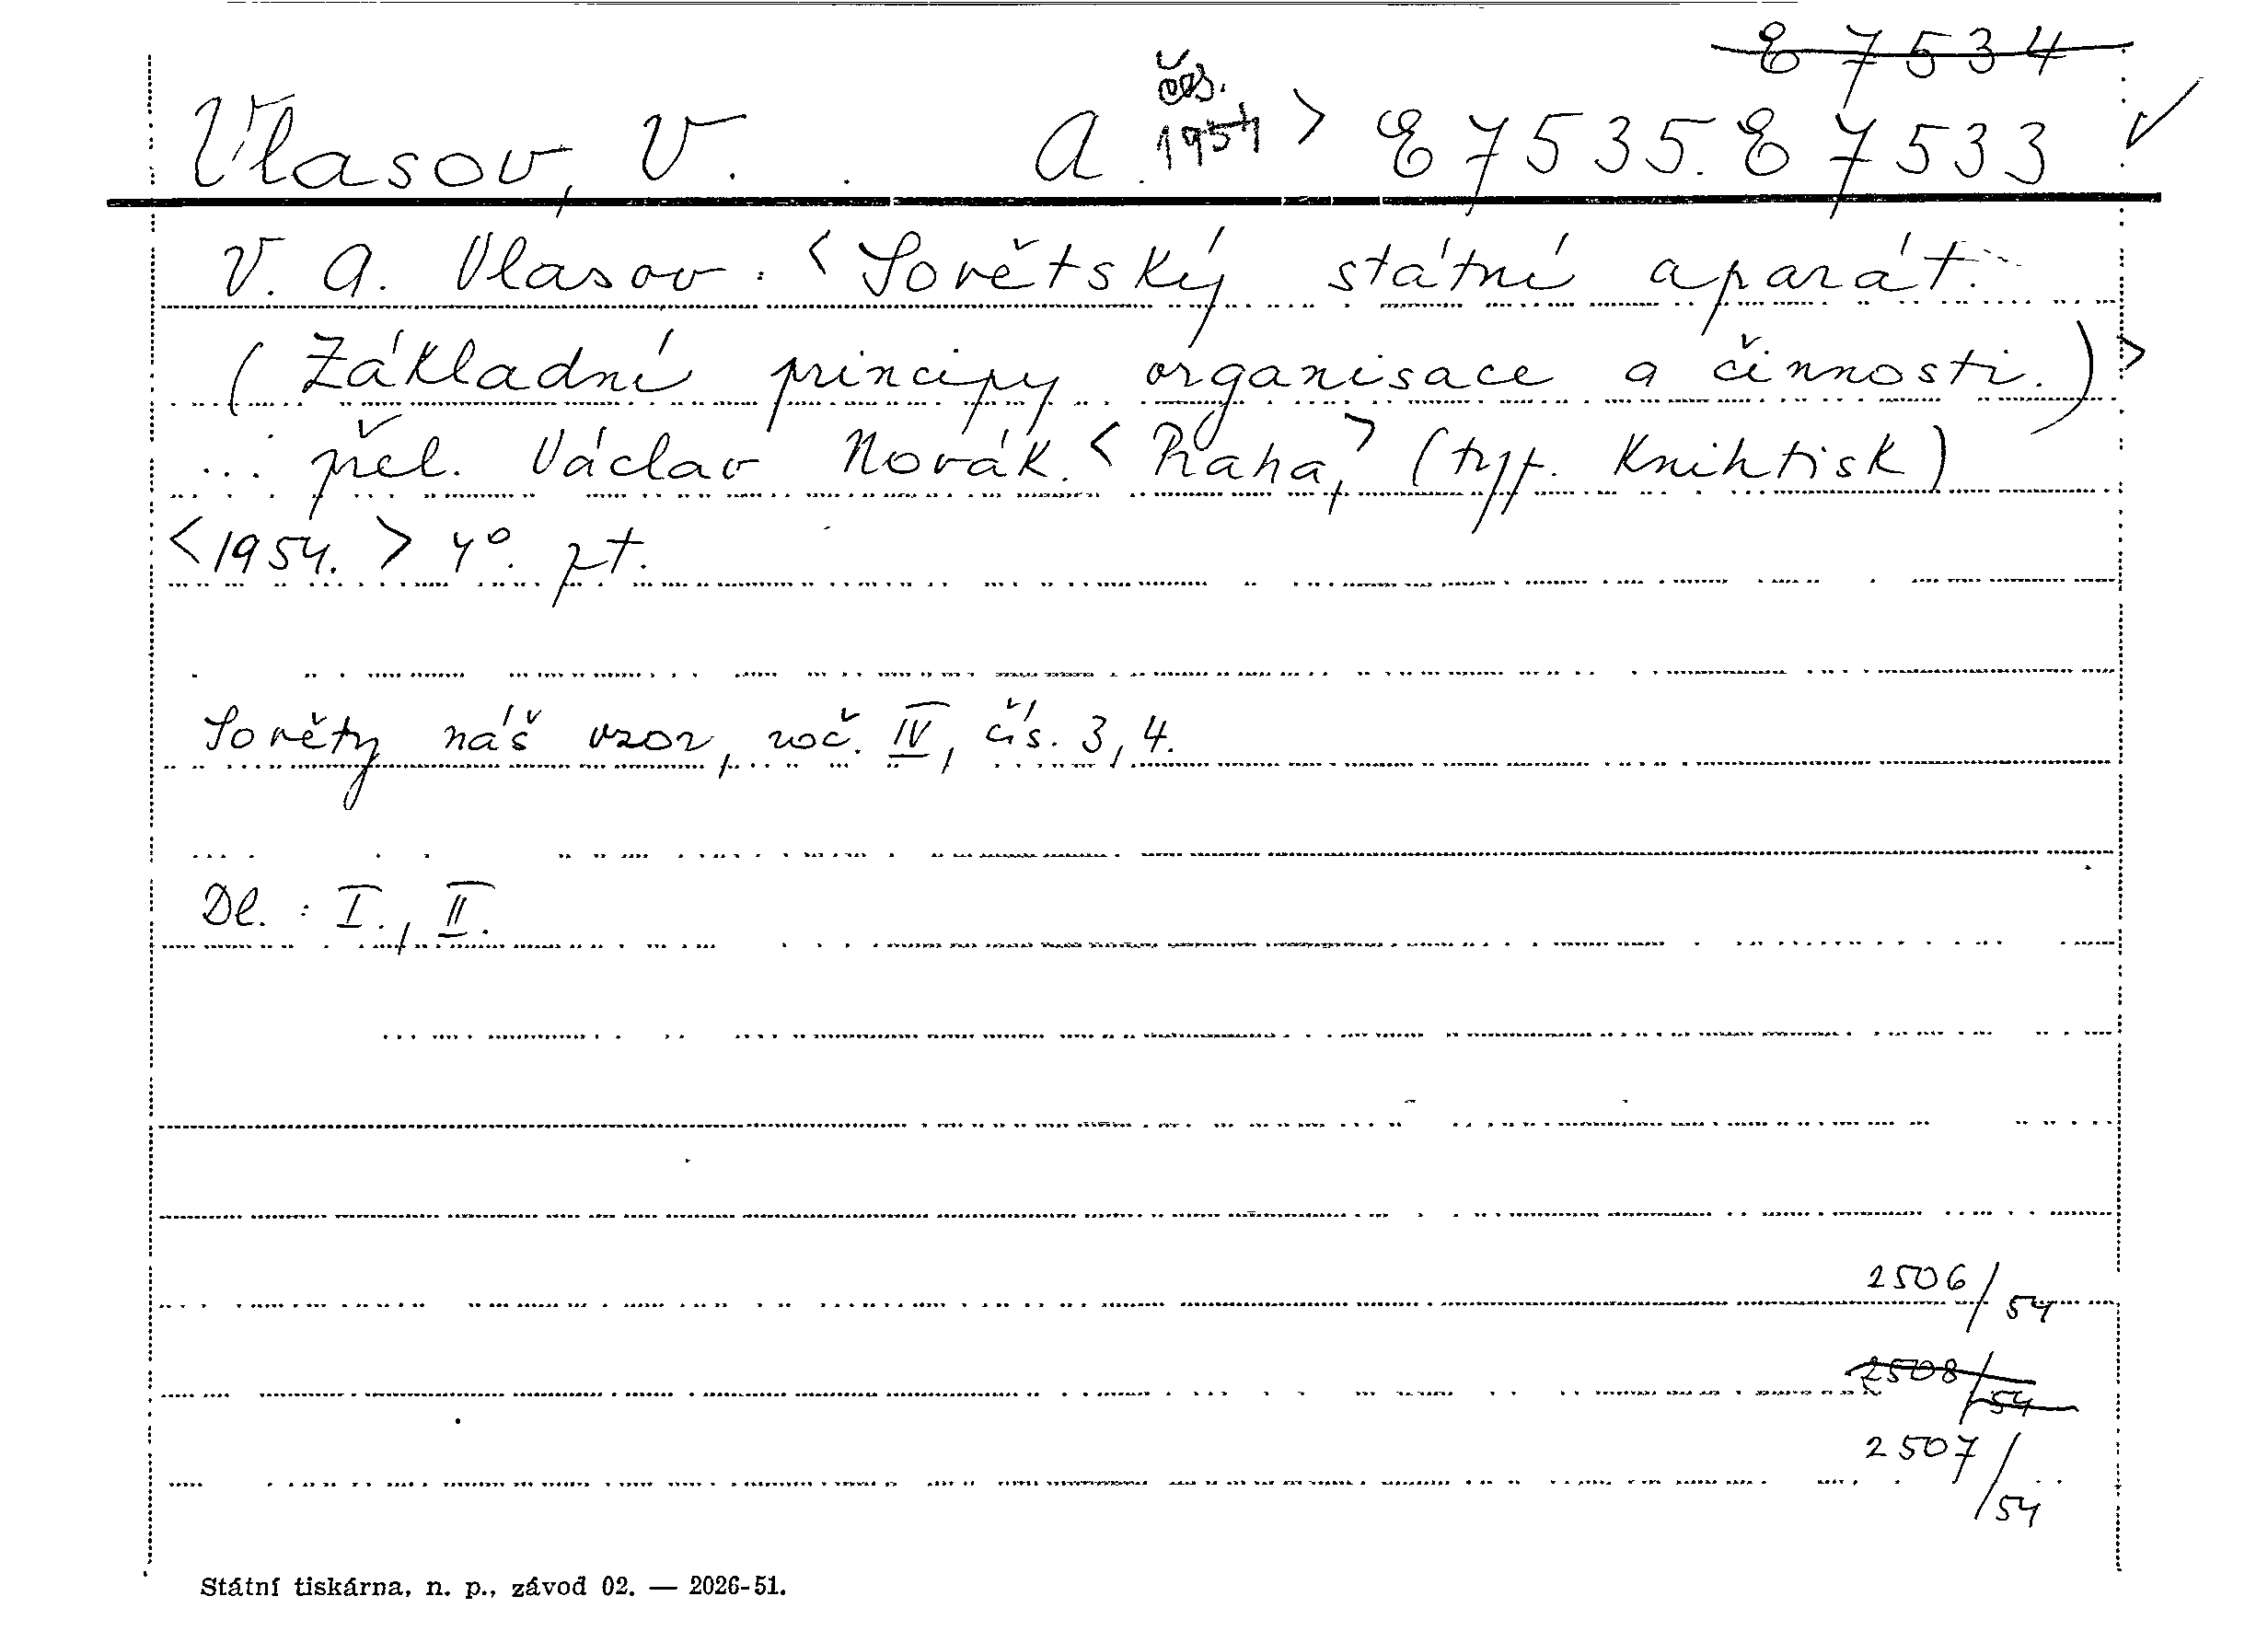 E 7534
čas.
Vlasov, V. A. 1954 > E 7535. E 7533 ✓
V. A. Vlasov: <Sovětský státní aparát.
(Základní principy organisace a činnosti.)>
... přel. Václav Novák. <Praha,> (typ. Knihtisk)
<1954.> 4°. pt.
Sověty náš vzor, roč. IV, čís. 3, 4.
Dl. : I., II.
2506/54
2508/54
2507/54
Státní tiskárna, n. p., závod 02. — 2026-51.